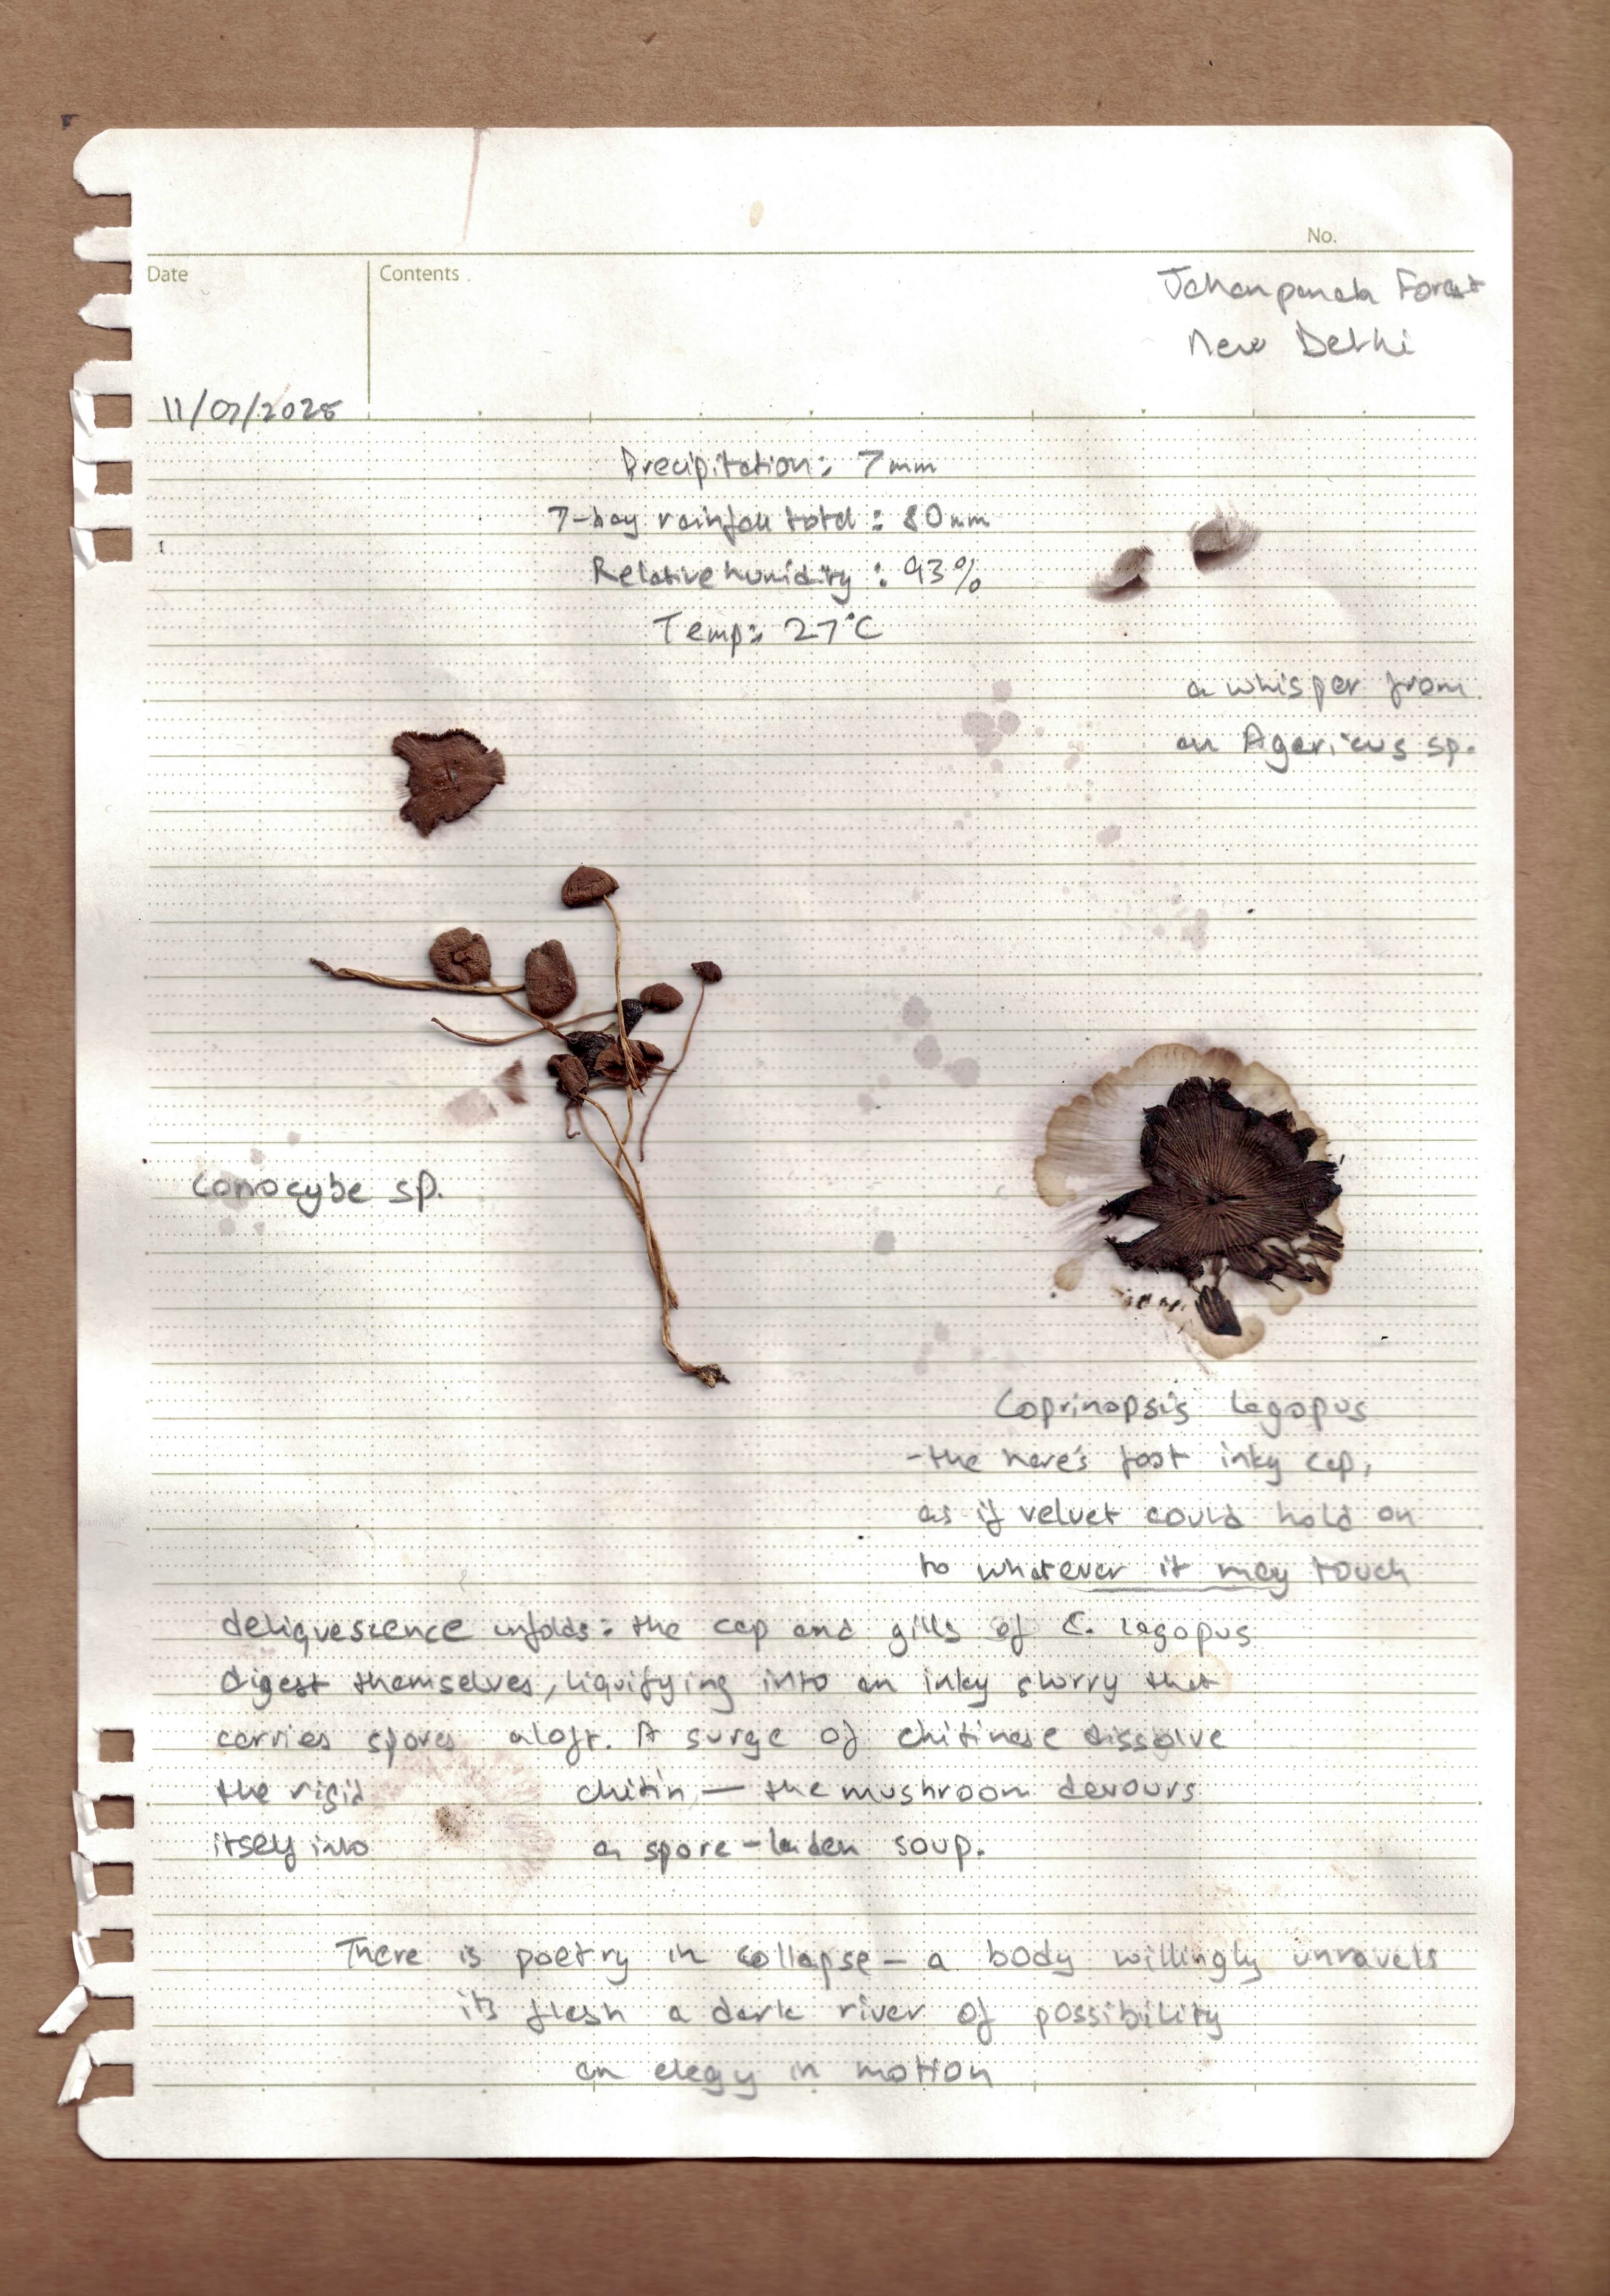 No.
Date
Contents
Jahanpanah Forest
New Delhi
11/07/2025
Precipitation: 7mm
7-day rainfall total: 80mm
Relative humidity: 93%
Temp: 27°C
a whisper from
an Agaricus sp.
Conocybe sp.
Coprinopsis lagopus
-the hare's foot inky cap,
as if velvet could hold on
to whatever it may touch
deliquescence unfolds: the cap and gills of C. lagopus
digest themselves, liquifying into an inky slurry that
carries spores aloft. A surge of chitinase dissolve
the rigid chitin — the mushroom devours
itself into a spore-laden soup.
There is poetry in collapse — a body willingly unravels
its flesh a dark river of possibility
an elegy in motion